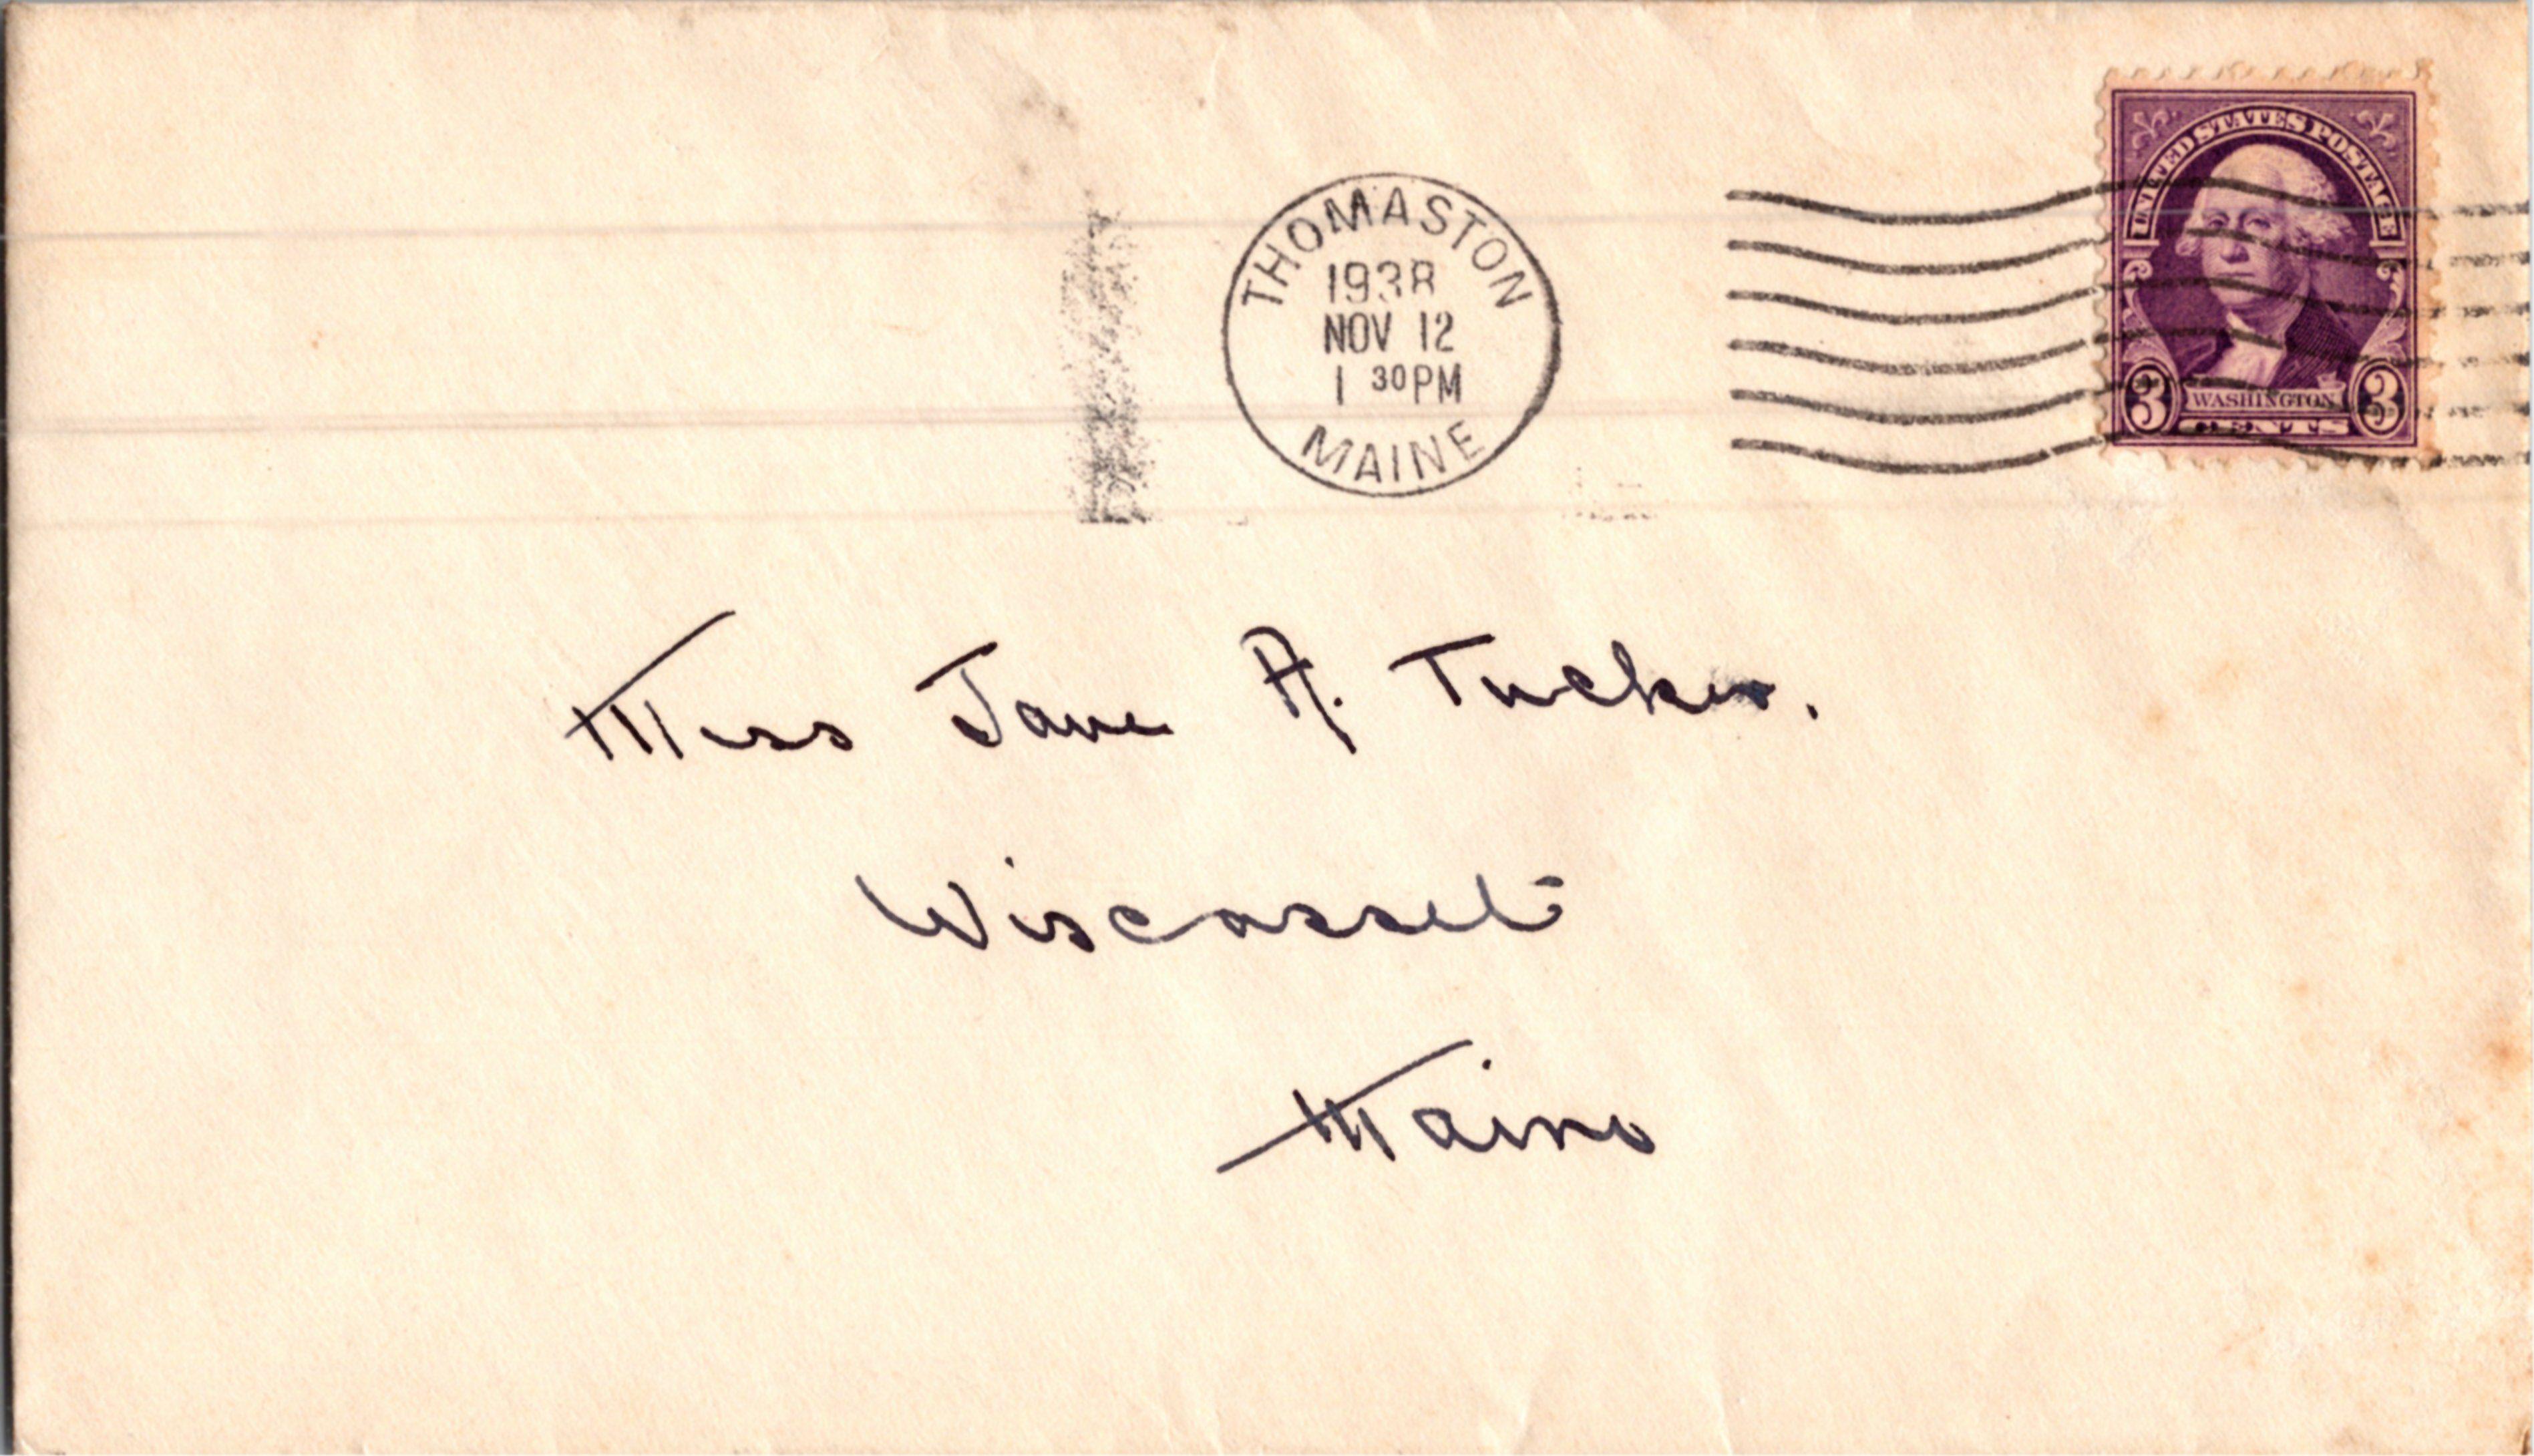 UNITED STATES POSTAGE
THOMASTON
1938
NOV 12
1 30 PM
MAINE
3 WASHINGTON 3
CENTS
Miss Jane A. Tucker.
Wiscasset
Maine